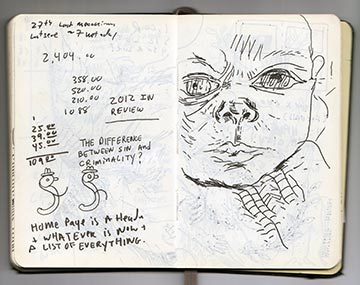 27th
2,404.00
358.00
520.00
210.00
1088
2012 IN
REVIEW
1
25.00
39.00
45.00
109.00
THE DIFFERENCE
BETWEEN SIN AND
CRIMINALITY?
HOME PAGE IS A
+ WHATEVER IS NOW +
A LIST OF EVERYTHING.